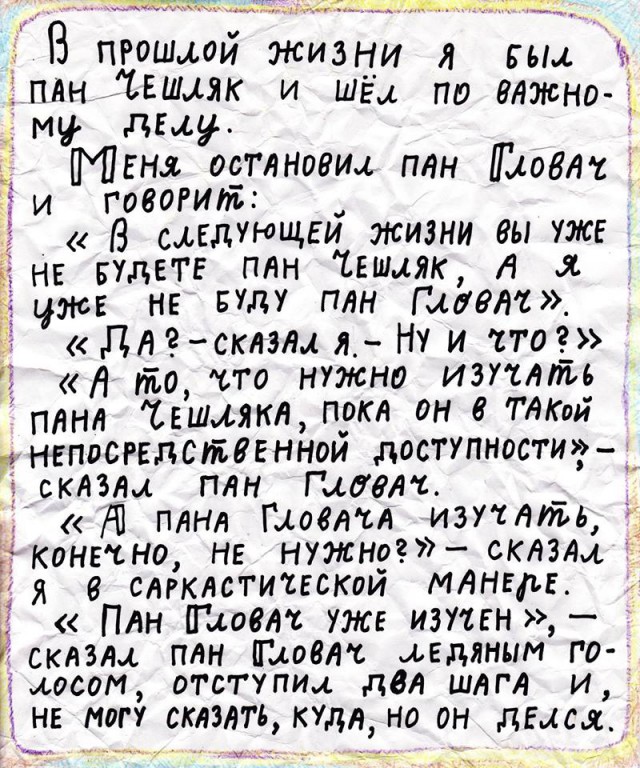 В ПРОШЛОЙ ЖИЗНИ Я БЫЛ
ПАН ЧЕШЛЯК И ШЁЛ ПО ВАЖНО-
МУ ДЕЛУ.
МЕНЯ ОСТАНОВИЛ ПАН ГЛОВАЧ
И ГОВОРИТ:
«В СЛЕДУЮЩЕЙ ЖИЗНИ ВЫ УЖЕ
НЕ БУДЕТЕ ПАН ЧЕШЛЯК, А Я
УЖЕ НЕ БУДУ ПАН ГЛОВАЧ».
«ДА? – СКАЗАЛ Я. – НУ И ЧТО?»
«А ТО, ЧТО НУЖНО ИЗУЧАТЬ
ПАНА ЧЕШЛЯКА, ПОКА ОН В ТАКОЙ
НЕПОСРЕДСТВЕННОЙ ДОСТУПНОСТИ», –
СКАЗАЛ ПАН ГЛОВАЧ.
«А ПАНА ГЛОВАЧА ИЗУЧАТЬ,
КОНЕЧНО, НЕ НУЖНО?» – СКАЗАЛ
Я В САРКАСТИЧЕСКОЙ МАНЕРЕ.
«ПАН ГЛОВАЧ УЖЕ ИЗУЧЕН», –
СКАЗАЛ ПАН ГЛОВАЧ ЛЕДЯНЫМ ГО-
ЛОСОМ, ОТСТУПИЛ ДВА ШАГА И,
НЕ МОГУ СКАЗАТЬ, КУДА, НО ОН ДЕЛСЯ.